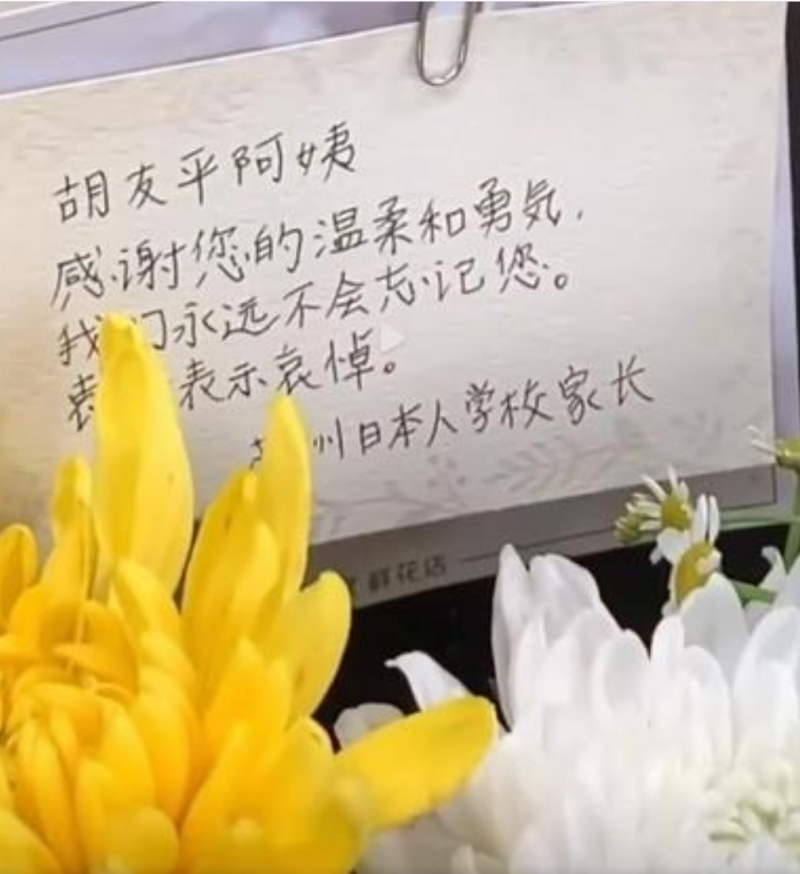 胡友平阿姨
感谢您的温柔和勇气，
我们永远不会忘记您。
表示哀悼。
州日本人学校家长
鲜花店